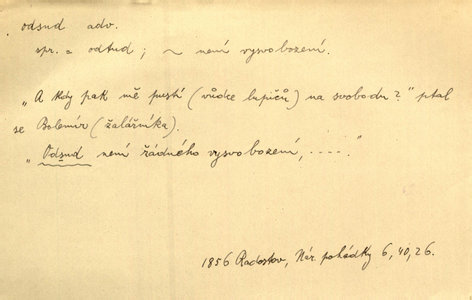 odsud adv.
spr. a odtud; ~ není vysvobození.
„A kdy pak mě pustí (vůdce lupičů) na svobodu?" ptal
se Bolemír (žalářníka).
„Odsud není řádného vysvobození, ....."
1856 Radostov, Nár. pohádky 6, 40, 26.